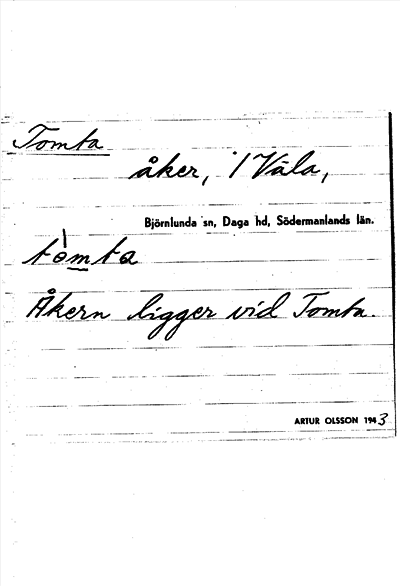 Tomta
åker, i Väla,
Björnlunda sn, Daga hd, Södermanlands län.
tòmta
Åkern ligger vid Tomta.
ARTUR OLSSON 1943